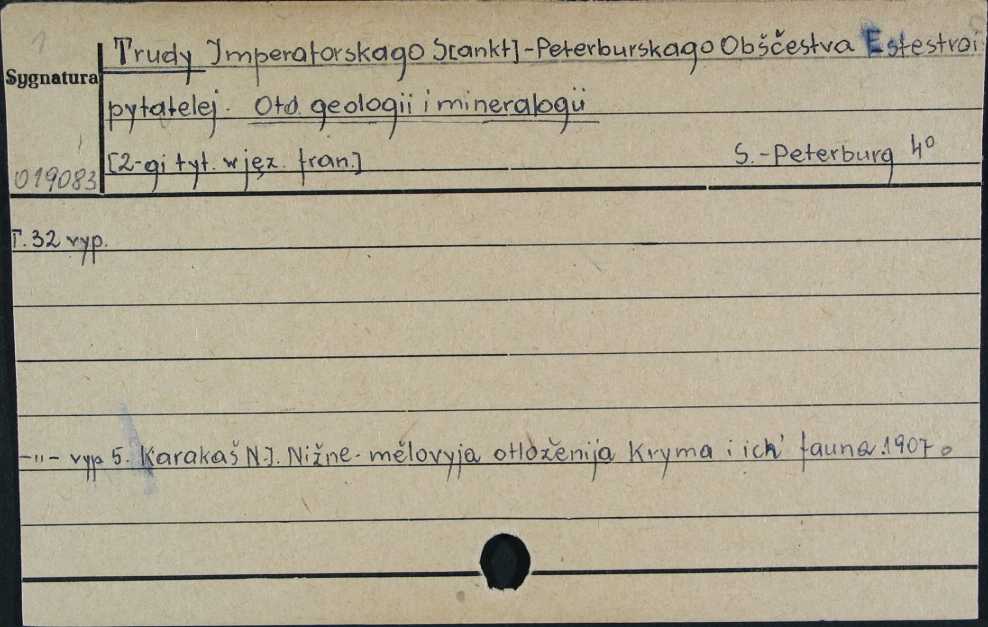 1
Trudy Imperatorskago S[ankt]-Peterburskago Obščestva Estestvoi
Sygnatura
pytatelej. Otd. geologii i mineralogii
[2-gi tyt. w jęz. fran.] S.-Peterburg 4°
019083
T. 32 vyp.
-"- vyp 5. Karakaš N.I. Nižne-mělovyja otložěnija Kryma i ich' fauna. 1907.